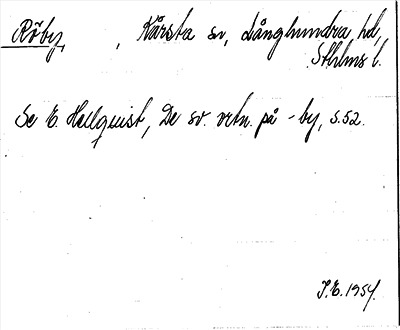 Röby, , Kårsta sn, Långhundra hd,
Sthlms l.
Se E. Hellquist, De sv. ortn. på -by, s.52.
I.E. 1954.